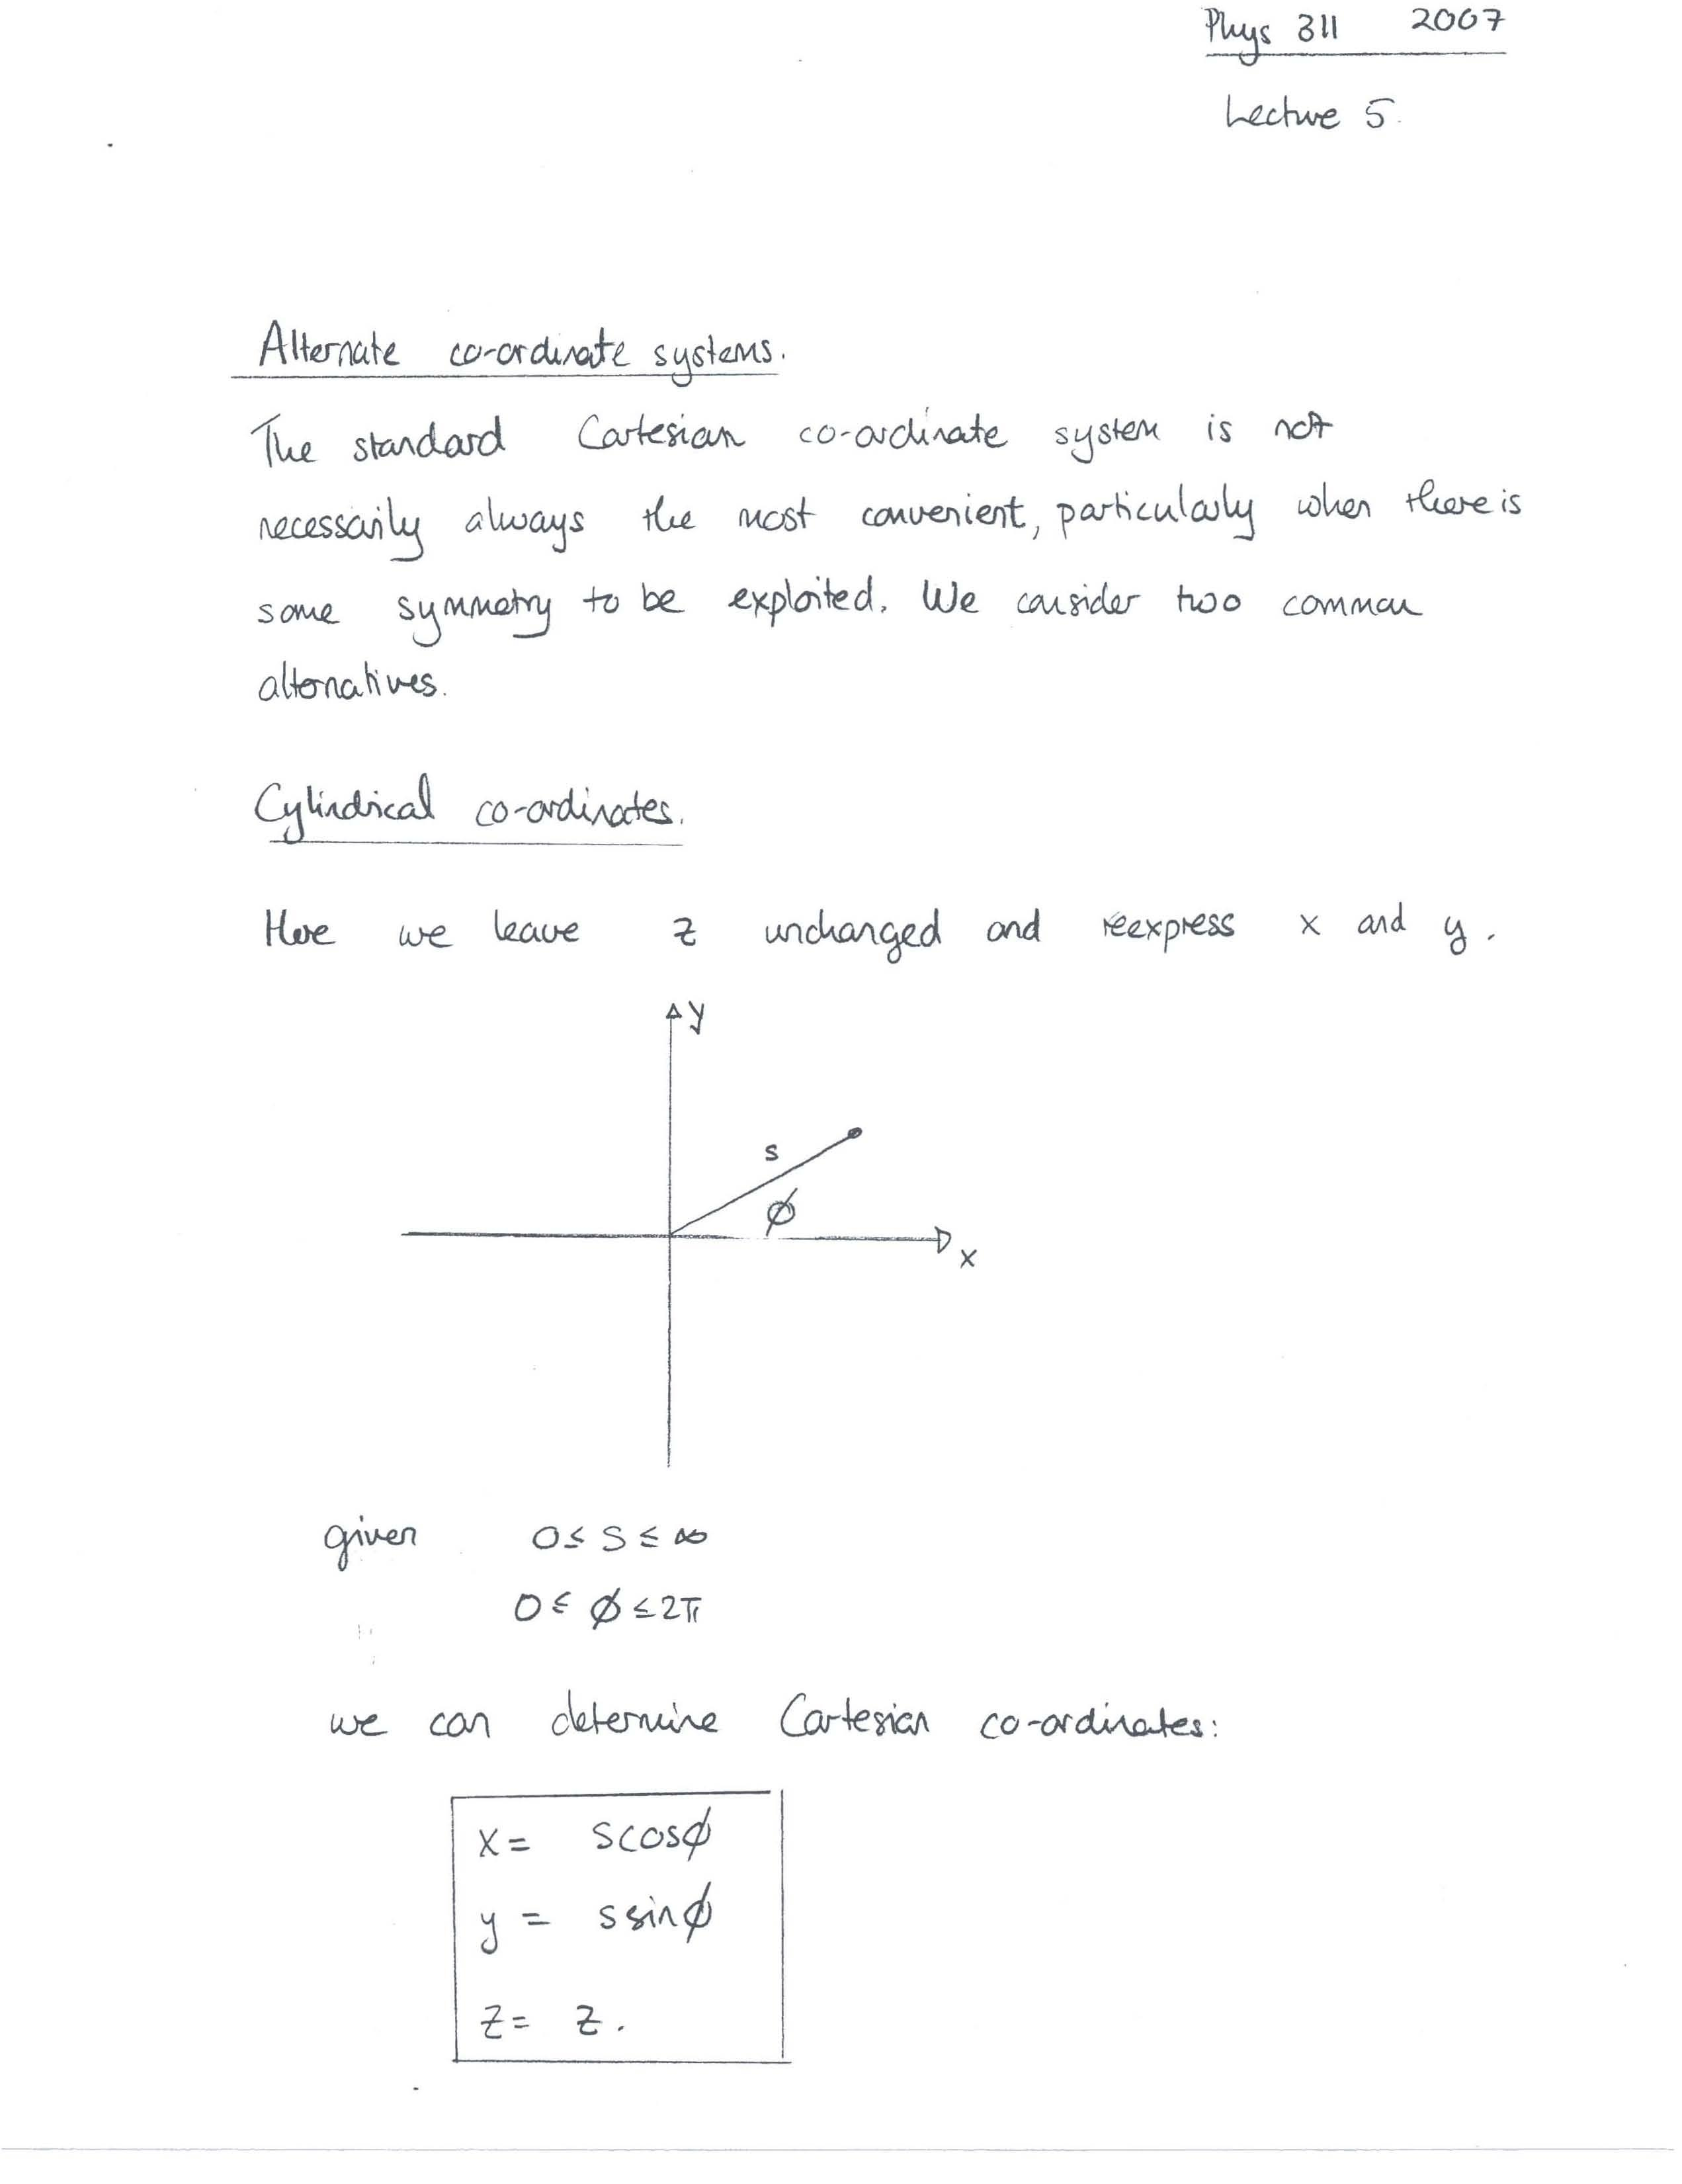 Phys 311 2007
Lecture 5.
Alternate co-ordinate systems.
The standard Cartesian co-ordinate system is not
necessarily always the most convenient, particularly when there is
some symmetry to be exploited. We consider two common
alternatives.
Cylindrical co-ordinates.
Here we leave z unchanged and reexpress x and y.
y
s
ϕ
x
given 0 ≤ s ≤ ∞
0 ≤ ϕ ≤ 2π
we can determine Cartesian co-ordinates:
x = s cos ϕ
y = s sin ϕ
z = z.